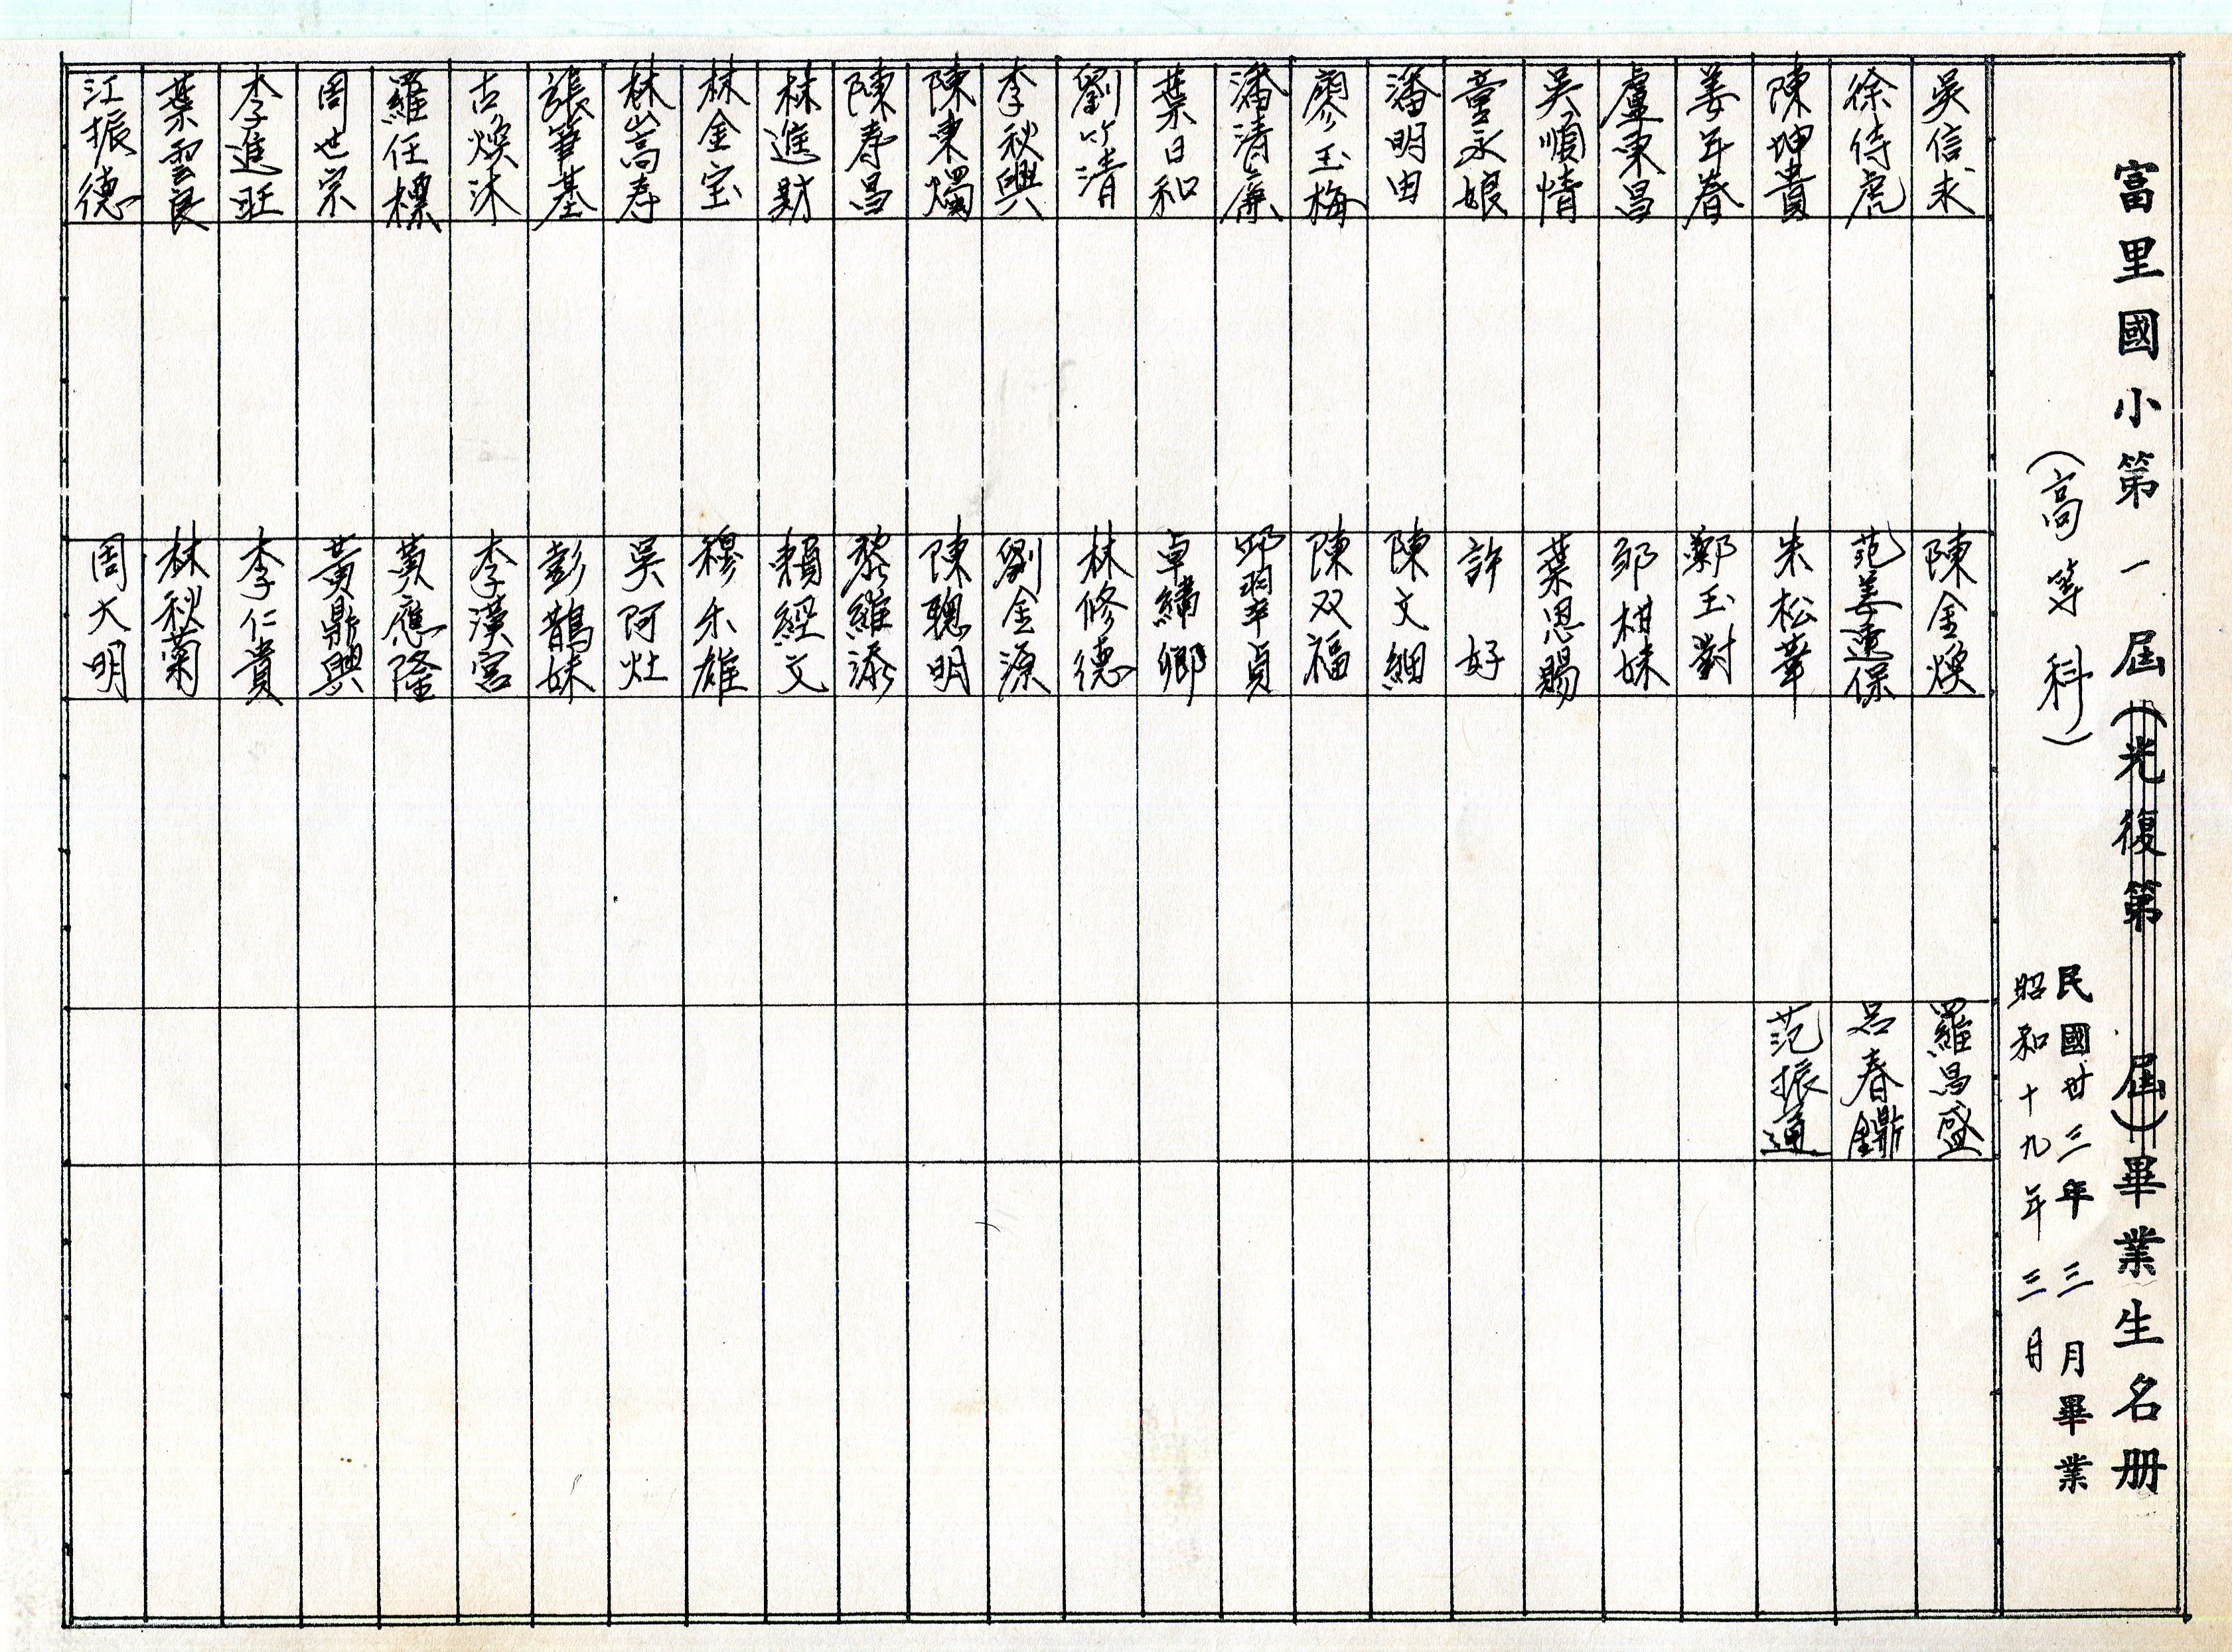 富里國小第一屆(光復第 屆)畢業生名册
(高等科)
民國廿三年三月畢業
昭和十九年三月
吳信求
徐侍虎
陳坤貴
姜年春
盧東昌
吳順情
童永娘
潘明由
廖玉梅
潘清廉
葉日和
劉竹清
李秋興
陳東燭
陳寿昌
林進財
林金宝
林嵩寿
張筆基
古煥沐
羅任標
周世宗
李進旺
葉雲良
江振德
陳金煥
范姜運保
朱松華
鄭玉對
邹柑妹
葉思賜
許好
陳文細
陳双福
邱翠貞
卓繡卿
林修德
劉金源
陳聰明
黎維添
賴經文
穆乐雄
吳阿灶
彭鵲妹
李漢宮
黃應隆
黃鼎興
李仁貴
林秋菊
周大明
羅昌盛
呂春鐤
范振通